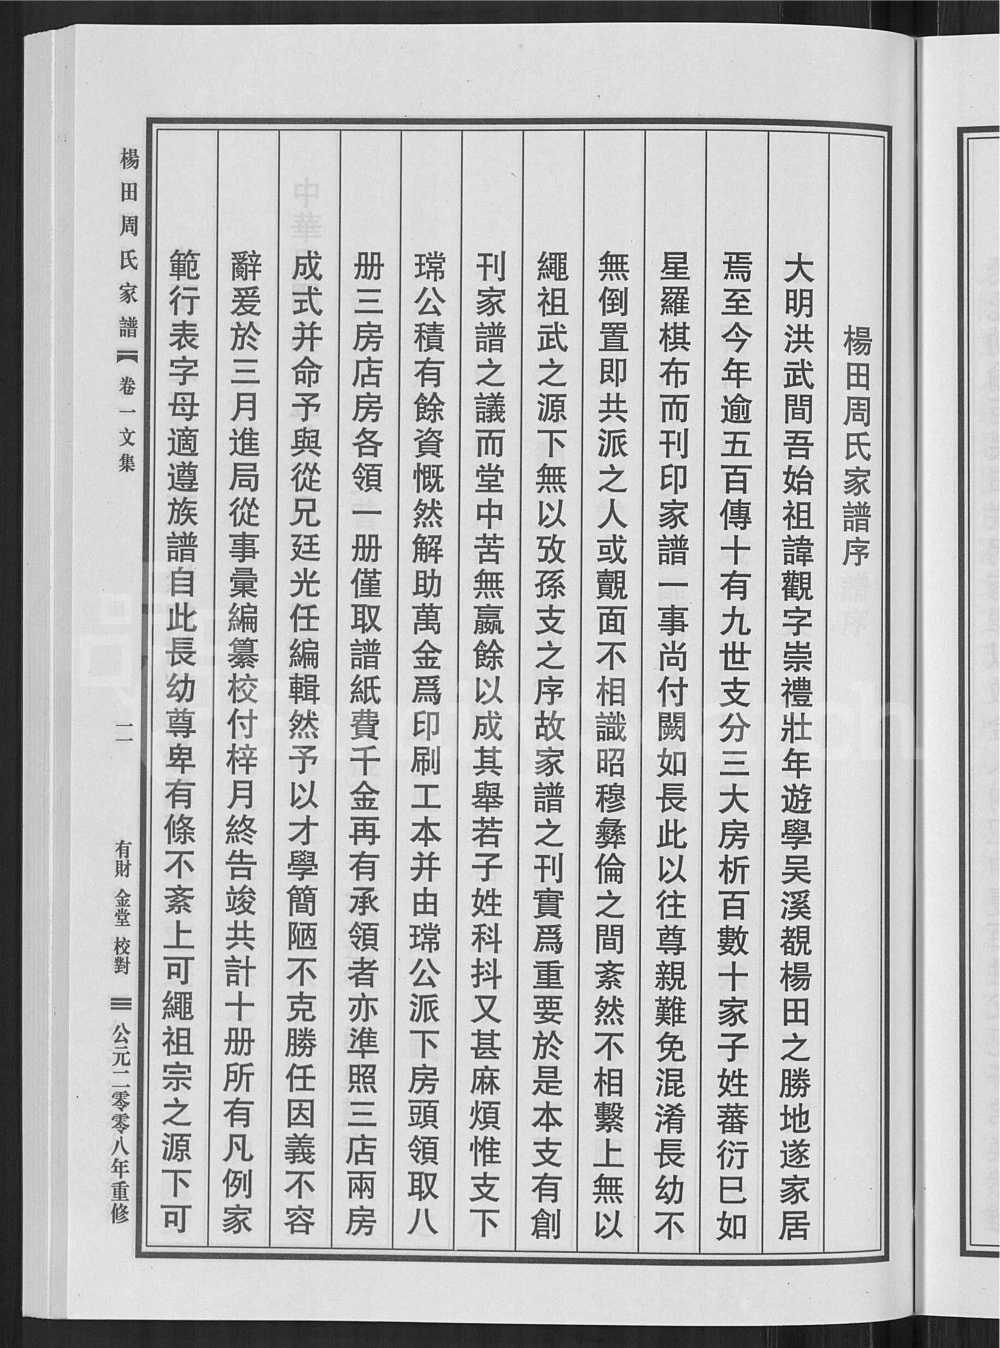 楊田周氏家譜序
大明洪武間吾始祖諱觀字崇禮壯年遊學吴溪覩楊田之勝地遂家居
焉至今年逾五百傳十有九世支分三大房析百數十家子姓蕃衍巳如
星羅棋布而刊印家譜一事尚付闕如長此以往尊親難免混淆長幼不
無倒置即共派之人或覿面不相識昭穆彝倫之間紊然不相繫上無以
繩祖武之源下無以攷孫支之序故家譜之刊實爲重要於是本支有創
刊家譜之議而堂中苦無嬴餘以成其舉若子姓科抖又甚麻煩惟支下
瑺公積有餘資慨然解助萬金爲印刷工本并由瑺公派下房頭領取八
册三房店房各領一册僅取譜紙費千金再有承領者亦準照三店兩房
成式并命予與從兄廷光任編輯然予以才學簡陋不克勝任因義不容
辭爰於三月進局從事彙編纂校付梓月終告竣共計十册所有凡例家
範行表字母適遵族譜自此長幼尊卑有條不紊上可繩祖宗之源下可
楊田周氏家譜 卷一文集
二
有財 金堂 校對
公元二零零八年重修